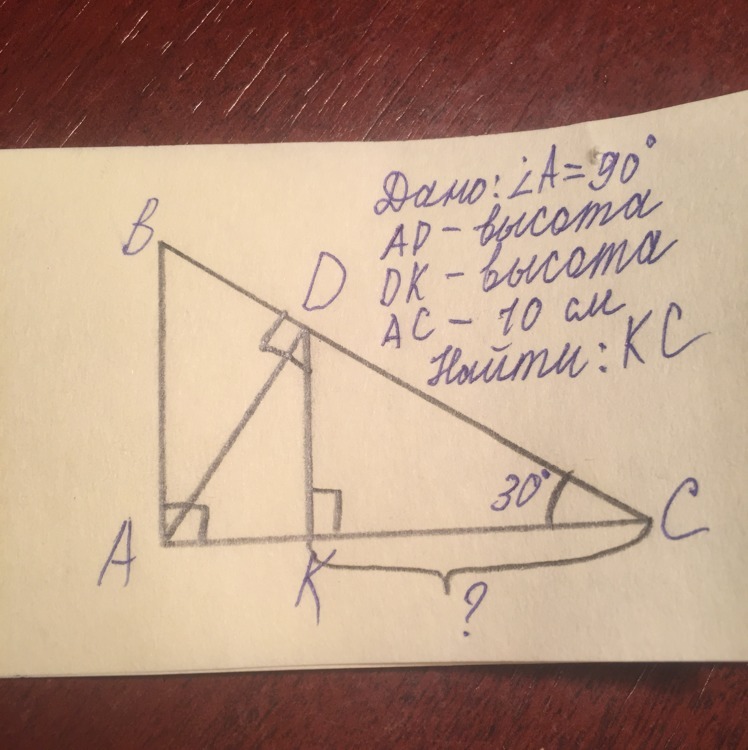 Дано: ∠A = 90°
AD - высота
DK - высота
AC - 10 см
Найти: KC
B
D
30°
A
K
C
?